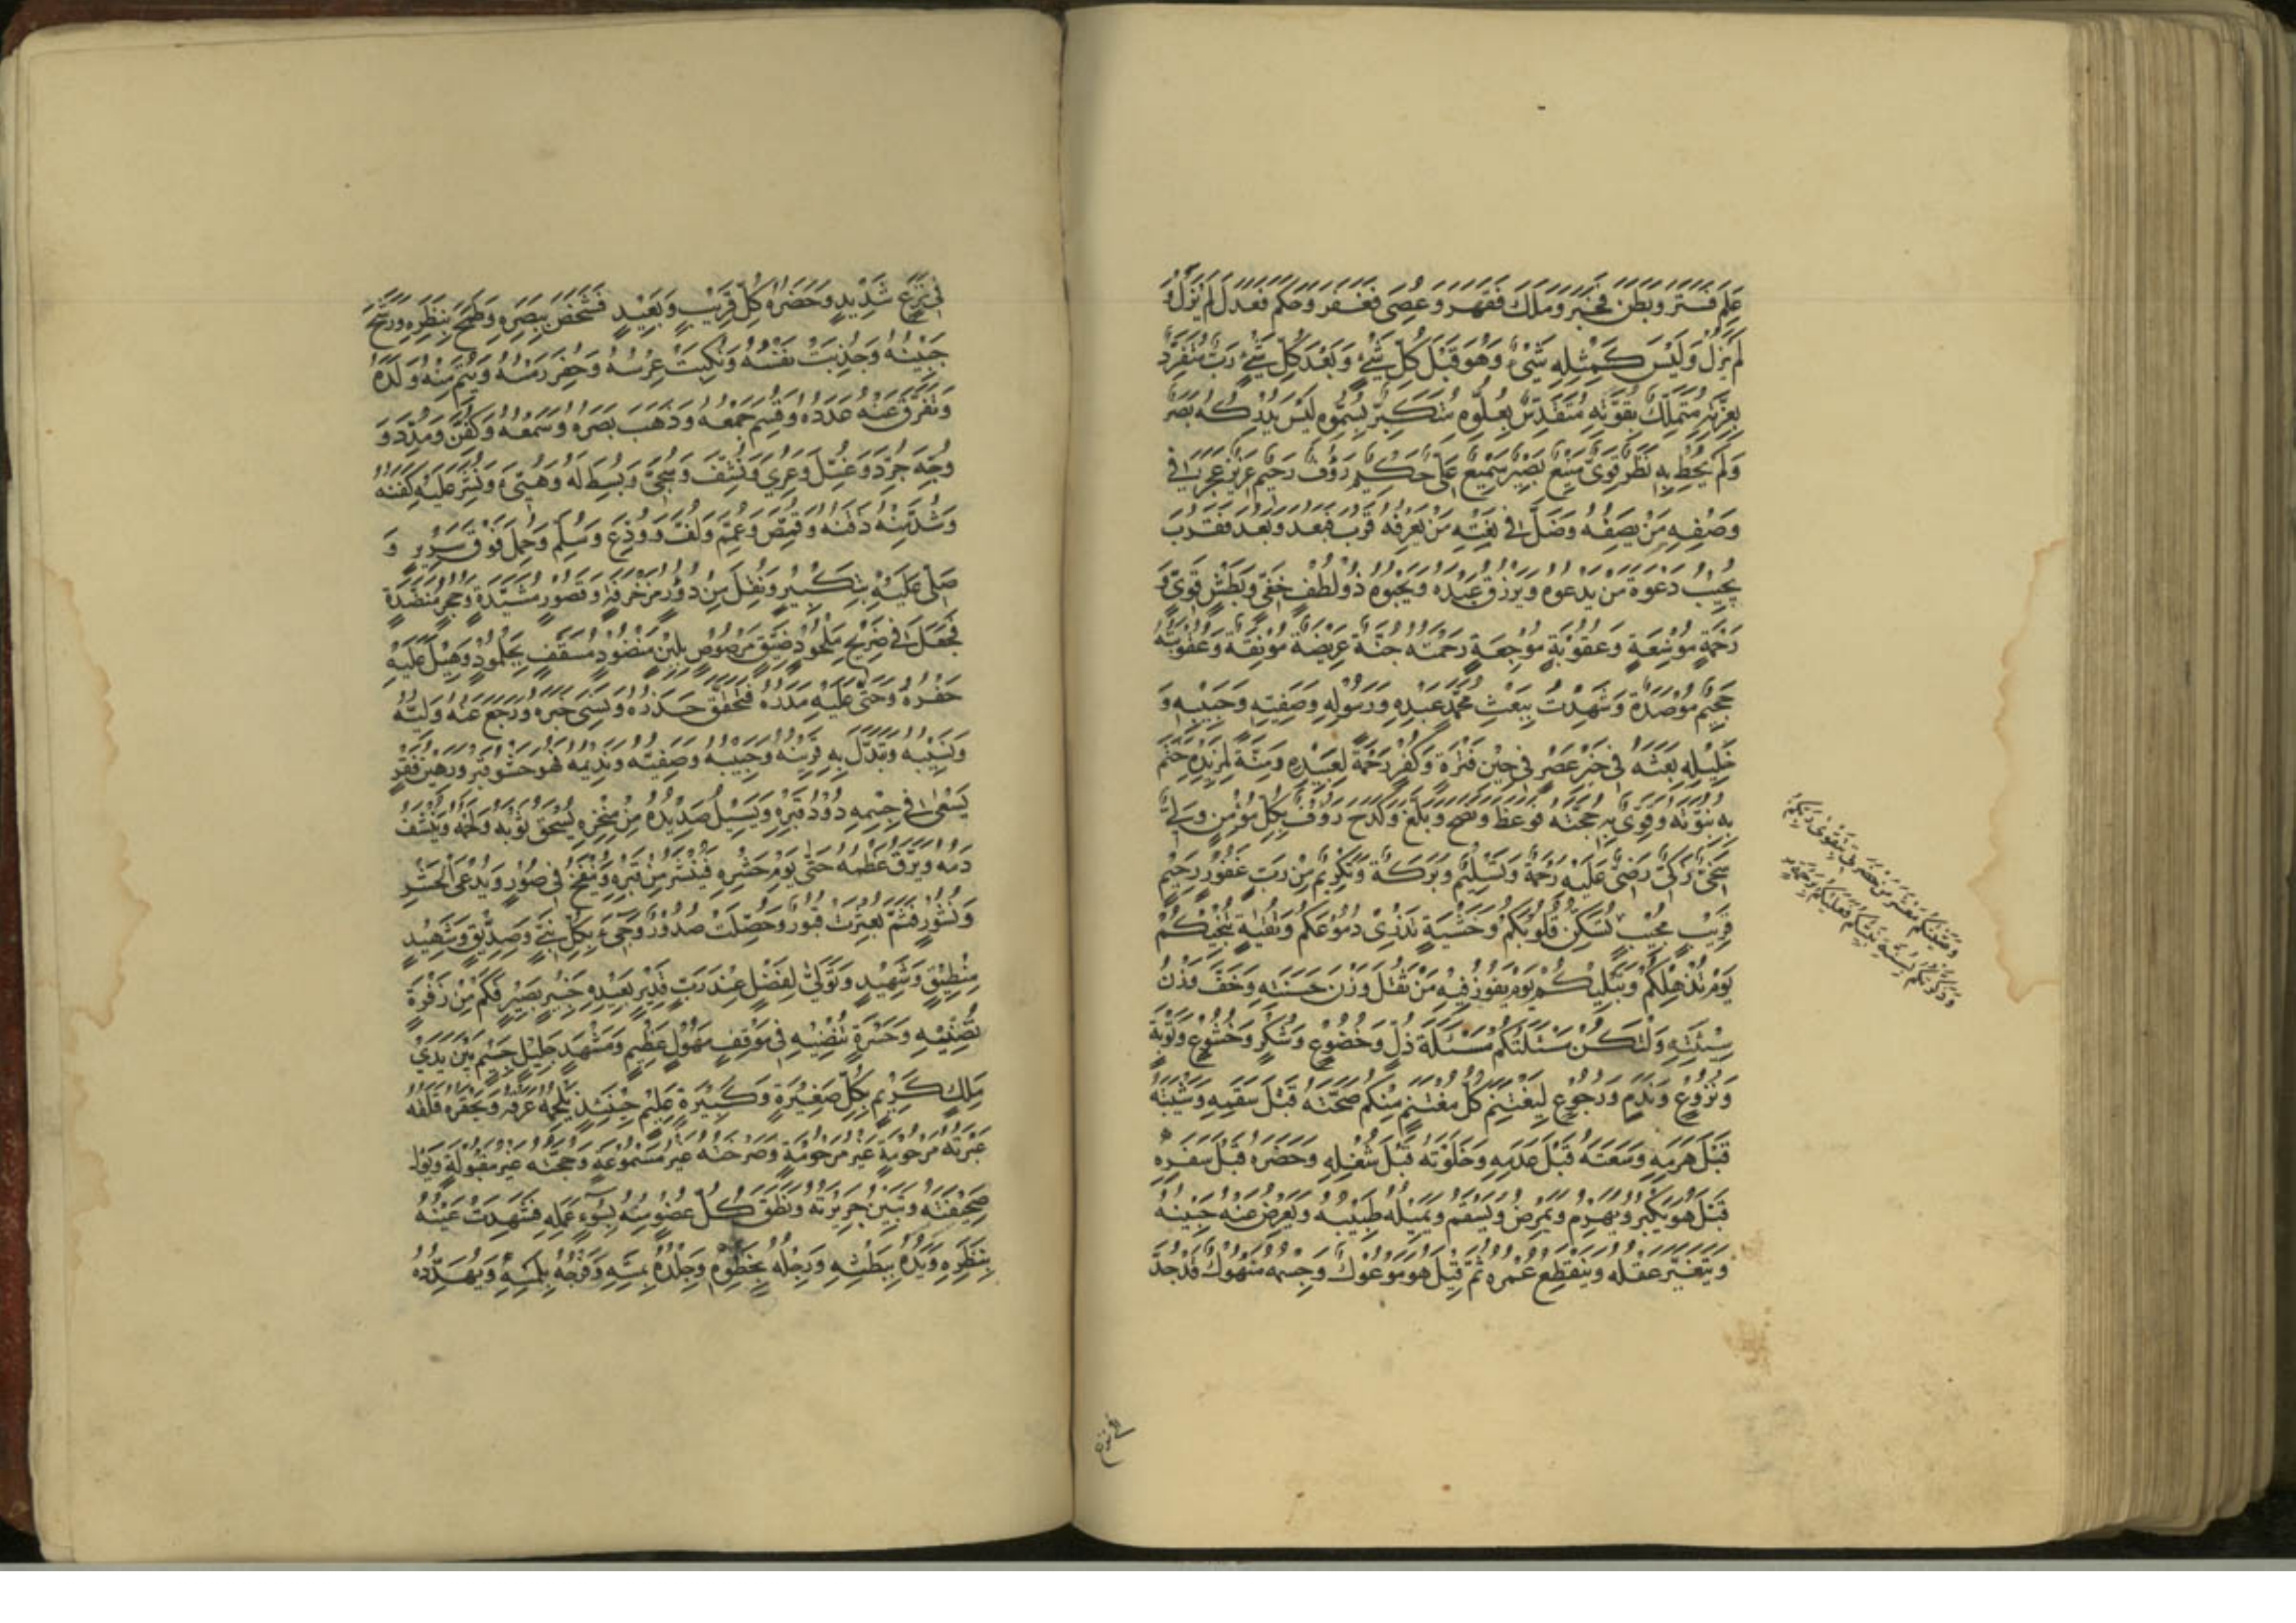 عَلِمَ فَسَتَرَ وَبَطَنَ فَخَبَرَ وَمَلَكَ فَقَهَرَ وَعُصِيَ فَغَفَرَ وَحَكَمَ فَعَدَلَ لَمْ يَزَلْ وَ
لَمْ يَزُلْ وَلَيْسَ كَمِثْلِهِ شَيْءٌ وَهُوَ قَبْلَ كُلِّ شَيْءٍ وَبَعْدَ كُلِّ شَيْءٍ رَبٌّ مُتَفَرِّدٌ
بِعِزَّتِهِ مُتَمَلِّكٌ بِقُوَّتِهِ مُتَقَدِّسٌ بِعُلُوِّهِ مُتَكَبِّرٌ بِسُمُوِّهِ لَيْسَ يُدْرِكُهُ بَصَرٌ
وَلَمْ يُحِطْ بِهِ نَظَرٌ قَوِيٌّ مَنِيعٌ بَصِيرٌ سَمِيعٌ عَلِيٌّ حَكِيمٌ رَؤُفٌ رَحِيمٌ عَزِيزٌ عَجَزَ فِي
وَصْفِهِ مَنْ يَصِفُهُ وَضَلَّ فِي نَعْتِهِ مَنْ يَعْرِفُهُ قَرُبَ فَبَعُدَ وَبَعُدَ فَقَرُبَ
يُجِيبُ دَعْوَةَ مَنْ يَدْعُوهُ وَيَرْزُقُ عَبْدَهُ وَيَحْبُوهُ ذُو لُطْفٍ خَفِيٍّ وَبَطْشٍ قَوِيٍّ وَ
رَحْمَةٍ مُوسَعَةٍ وَعُقُوبَةٍ مُوجِعَةٍ رَحْمَتُهُ جَنَّةٌ عَرِيضَةٌ مُونِقَةٌ وَعُقُوبَتُهُ
جَحِيمٌ مُوصَدَةٌ وَشَهِدْتُ بِبَعْثِ مُحَمَّدٍ عَبْدِهِ وَرَسُولِهِ وَصَفِيِّهِ وَحَبِيبِهِ وَ
خَلِيلِهِ بَعَثَهُ فِي خَيْرِ عَصْرٍ فِي حِينِ فَتْرَةٍ وَكُفْرٍ رَحْمَةً لِعَبِيدِهِ وَمِنَّةً لِمَزِيدِهِ خَتَمَ
بِهِ نُبُوَّتَهُ وَقَوَّى بِهِ حُجَّتَهُ فَوَعَظَ وَنَصَحَ وَبَلَّغَ وَكَدَحَ رَؤُفٌ بِكُلِّ مُؤْمِنٍ وَلِيٌّ
سَخِيٌّ زَكِيٌّ رَضِيٌّ عَلَيْهِ رَحْمَةٌ وَتَسْلِيمٌ وَبَرَكَةٌ وَتَكْرِيمٌ مِنْ رَبٍّ غَفُورٍ رَحِيمٍ
قَرِيبٍ مُجِيبٍ تُسَكِّنُ قُلُوبَكُمْ وَخَشْيَةٍ تُذْرِي دُمُوعَكُمْ وَتَقِيَّةٍ تُنْجِيكُمْ
يَوْمَ تُذْهِلُكُمْ وَتُبْلِيكُمْ يَوْمَ يَفُوزُ فِيهِ مَنْ ثَقُلَ وَزْنُ حَسَنَتِهِ وَخَفَّ وَزْنُ
سَيِّئَتِهِ وَلْتَكُنْ مَسْئَلَتُكُمْ مَسْئَلَةَ ذُلٍّ وَخُضُوعٍ وَشُكْرٍ وَخُشُوعٍ وَتَوْبَةٍ
وَنُزُوعٍ وَنَدَمٍ وَرُجُوعٍ لِيَغْتَنِمْ كُلُّ مُغْتَنِمٍ مِنْكُمْ صِحَّتَهُ قَبْلَ سَقَمِهِ وَشَيْبَتَهُ
قَبْلَ هَرَمِهِ وَسَعَتَهُ قَبْلَ عَدَمِهِ وَخَلْوَتَهُ قَبْلَ شُغْلِهِ وَحَضَرَهُ قَبْلَ سَفَرِهِ
قَبْلَ هُوَ يَكْبُرُ وَيَهْرَمُ وَيَمْرَضُ وَيَسْقَمُ وَيُمِيلُهُ طَبِيبُهُ وَيُعْرِضُ عَنْهُ حَبِيبُهُ
وَيَتَغَيَّرُ عَقْلُهُ وَيَنْقَطِعُ عُمْرُهُ ثُمَّ قِيلَ هُوَ مَوْعُوكٌ وَجِسْمُهُ مَنْهُوكٌ قَدْ جَدَّ
وَصَّيْتُكُمْ مَعْشَرَ مَنْ حَضَرَنِي بِتَقْوَى رَبِّكُمْ
وَذَكَّرْتُكُمْ بِسُنَّةِ نَبِيِّكُمْ فَعَلَيْكُمْ بِرَهْبَةٍ
في نزع
فِي نَزْعٍ شَدِيدٍ وَحَضَرَهُ كُلُّ قَرِيبٍ وَبَعِيدٍ فَشَخَصَ بِبَصَرِهِ وَطَمَحَ بِنَظَرِهِ وَرَشَحَ
جَبِينُهُ وَجُذِبَتْ نَفْسُهُ وَبَكَتْ عِرْسُهُ وَحُفِرَ رَمْسُهُ وَيُتِّمَ مِنْهُ وَلَدُهُ
وَتَفَرَّقَ عَنْهُ عَدَدُهُ وَقُسِمَ جَمْعُهُ وَذَهَبَ بَصَرُهُ وَسَمْعُهُ وَكُفِّنَ وَمُدِّدَ وَ
وُجِّهَ جُرِّدَ وَغُسِّلَ وَعُرِيَ وَنُشِّفَ وَسُجِّيَ وَبُسِطَ لَهُ وَهُيِّئَ وَنُشِرَ عَلَيْهِ كَفَنُهُ
وَشُدَّ مِنْهُ ذَقَنُهُ وَقُمِّصَ وَعُمِّمَ وَلُفَّ وَوُدِّعَ وَسُلِّمَ وَحُمِلَ فَوْقَ سَرِيرٍ وَ
صُلِّيَ عَلَيْهِ بِتَكْبِيرٍ وَنُقِلَ مِنْ دُورٍ مُزَخْرَفَةٍ وَقُصُورٍ مُشَيَّدَةٍ وَحُجَرٍ مُنَضَّدَةٍ
فَجُعِلَ فِي ضَرِيحٍ مَلْحُودٍ ضَيِّقٍ مَرْصُوصٍ بِلَبِنٍ مَنْضُودٍ مُسَقَّفٍ بِجُلْمُودٍ وَهِيلَ عَلَيْهِ
حَفْرُهُ وَحُثِيَ عَلَيْهِ مَدَرُهُ فَتَحَقَّقَ حَذَرُهُ وَنُسِيَ خَبَرُهُ وَرَجَعَ عَنْهُ وَلِيُّهُ
وَنَسِيبُهُ وَتَبَدَّلَ بِهِ قَرِينُهُ وَحَبِيبُهُ وَصَفِيُّهُ وَنَدِيمُهُ فَهُوَ حَشْوُ قَبْرٍ وَرَهِينُ قَفْرٍ
يَسْعَى فِي جِسْمِهِ دُودُ قَبْرِهِ وَيَسِيلُ صَدِيدُهُ مِنْ مَنْخِرِهِ يُسْحَقُ ثَوْبُهُ وَلَحْمُهُ وَيُنْشَفُ
دَمُهُ وَيُرَقُّ عَظْمُهُ حَتَّى يَوْمِ حَشْرِهِ فَيُنْشَرُ مِنْ قَبْرِهِ وَيُنْفَخُ فِي صُورٍ وَيُدْعَى لِحَشْرٍ
وَنُشُورٍ فَثَمَّ بُعْثِرَتْ قُبُورٌ وَحُصِّلَتْ صُدُورٌ وَجِيءَ بِكُلِّ نَبِيٍّ وَصِدِّيقٍ وَشَهِيدٍ
مِنْطِيقٍ وَشَهِيدٍ وَتَوَلَّى لِفَصْلٍ عِنْدَ رَبٍّ قَدِيرٍ بِعَبِيدِهِ خَبِيرٍ بَصِيرٍ فَكَمْ مِنْ زَفْرَةٍ
تُضْنِيهِ وَحَسْرَةٍ تُنْضِيهِ فِي مَوْقِفٍ مَهُولٍ عَظِيمٍ وَمَشْهَدٍ جَلِيلٍ جَسِيمٍ بَيْنَ يَدَيْ
مَلِكٍ كَرِيمٍ بِكُلِّ صَغِيرَةٍ وَكَبِيرَةٍ عَلِيمٍ حِينَئِذٍ يُلْجِمُهُ عَرَقُهُ وَيَحْفِزُهُ قَلَقُهُ
عَبْرَتُهُ غَيْرُ مَرْحُومَةٍ وَصَرْخَتُهُ غَيْرُ مَسْمُوعَةٍ وَحُجَّتُهُ غَيْرُ مَقْبُولَةٍ
صَحِيفَتُهُ وَتَبَيَّنَ جَرِيرَتُهُ وَنَطَقَ كُلُّ عُضْوٍ مِنْهُ بِسُوءِ عَمَلِهِ فَشَهِدَتْ عَيْنُهُ
بِنَظَرِهِ وَيَدُهُ بِبَطْشِهِ وَرِجْلُهُ بِخَطْوِهِ وَجِلْدُهُ بِمَسِّهِ وَفَرْجُهُ بِلَمْسِهِ وَيُهَدِّدُهُ